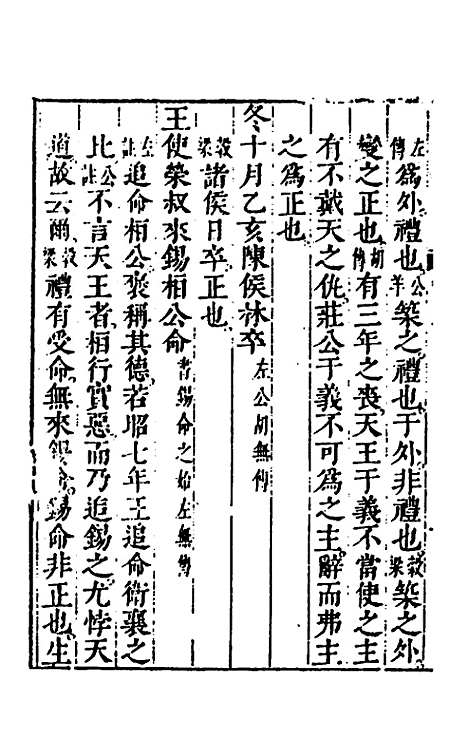 左傳為外禮也公羊築之禮也于外非禮也穀梁築之外
變之正也胡傳有三年之喪天王于義不當使之主
有不戴天之仇莊公于義不可為之主辭而弗主
之為正也
冬十月乙亥陳侯林卒左公胡無傳
穀梁諸侯日卒正也
王使榮叔來錫桓公命書錫命之始左無傳
左註追命桓公褒稱其德若昭七年王追命衛襄之
比公註不言天王者桓行實惡而乃追錫之尤悖天
道故云爾穀梁禮有受命無來錫命錫命非正也生